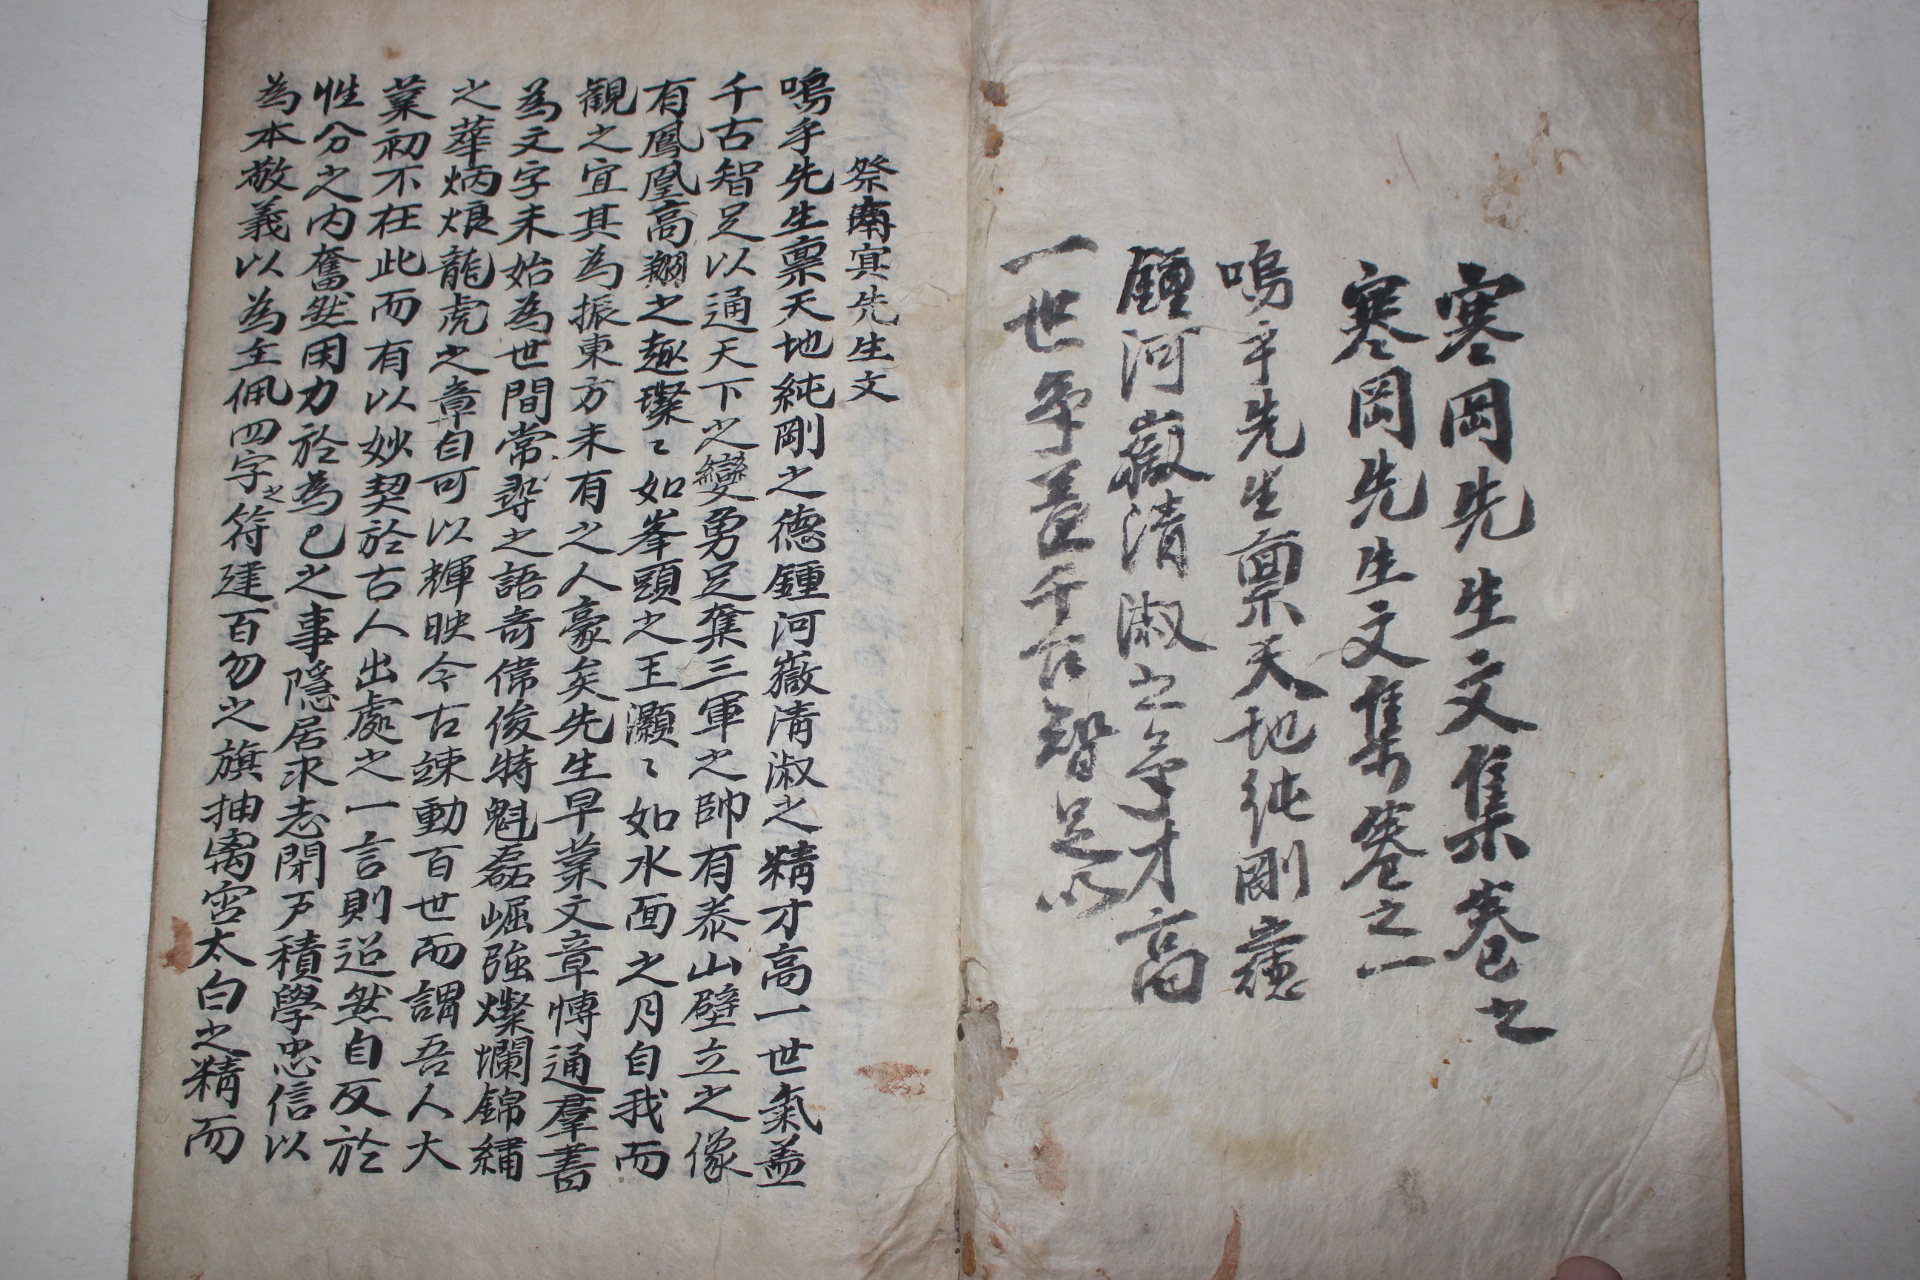 寒岡先生文集卷之
寒岡先生文集卷之一
嗚乎先生禀天地純剛德
鍾河嶽清淑之氣才高
一世氣盖千古智足以
祭南冥先生文
嗚乎先生禀天地純剛之德鍾河嶽清淑之精才高一世氣盖
千古智足以通天下之變勇足奪三軍之帥有泰山壁立之像
有鳳凰高翔之趣璨〻如峯頭之玉灝〻如水面之月自我而
觀之宜其為振東方未有之人豪矣先生早業文章博通羣書
為文字未始為世間常尋之語奇偉俊特魁磊崛強燦爛錦繡
之華炳烺龍虎之章自可以輝映今古竦動百世而謂吾人大
業初不在此而有以妙契於古人出處之一言則迢然自反於
性分之内奮然用力於為己之事隱居求志閉戶積學忠信以
為本敬義以為主佩四字之符建百勿之旗抽禹宮太白之精而